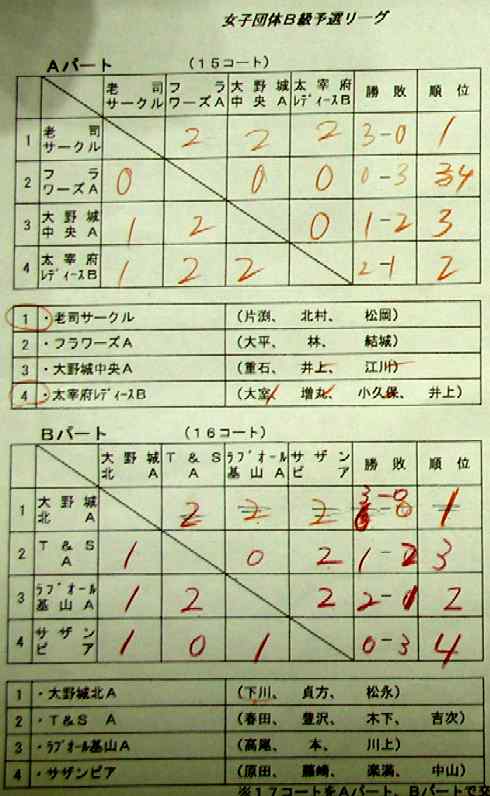 女子団体B級予選リーグ
Aパート （15コート）
老司サークル フラワーズA 大野城中央A 太宰府レディースB 勝敗 順位
1 老司サークル 2 2 2 3-0 1
2 フラワーズA 0 0 0 0-3 4
3 大野城中央A 1 2 0 1-2 3
4 太宰府レディースB 1 2 2 2-1 2
1 ・老司サークル （片渕、 北村、 松岡）
2 ・フラワーズA （大平、 林、 結城）
3 ・大野城中央A （重石、 井上、 江川）
4 ・太宰府レディースB （大室、 増丸、 小久保、 井上）
Bパート （16コート）
大野城北A T&S A ラブオール基山A サザンピア 勝敗 順位
1 大野城北A 2 2 2 3-0 1
2 T&S A 1 0 2 1-2 3
3 ラブオール基山A 1 2 2 2-1 2
4 サザンピア 1 0 1 0-3 4
1 ・大野城北A （下川、 貞方、 松永）
2 ・T&S A （春田、 豊沢、 木下、 吉次）
3 ・ラブオール基山A （高尾、 本、 川上）
4 ・サザンピア （原田、 藤崎、 楽満、 中山）
※17コートをAパート、Bパートで交